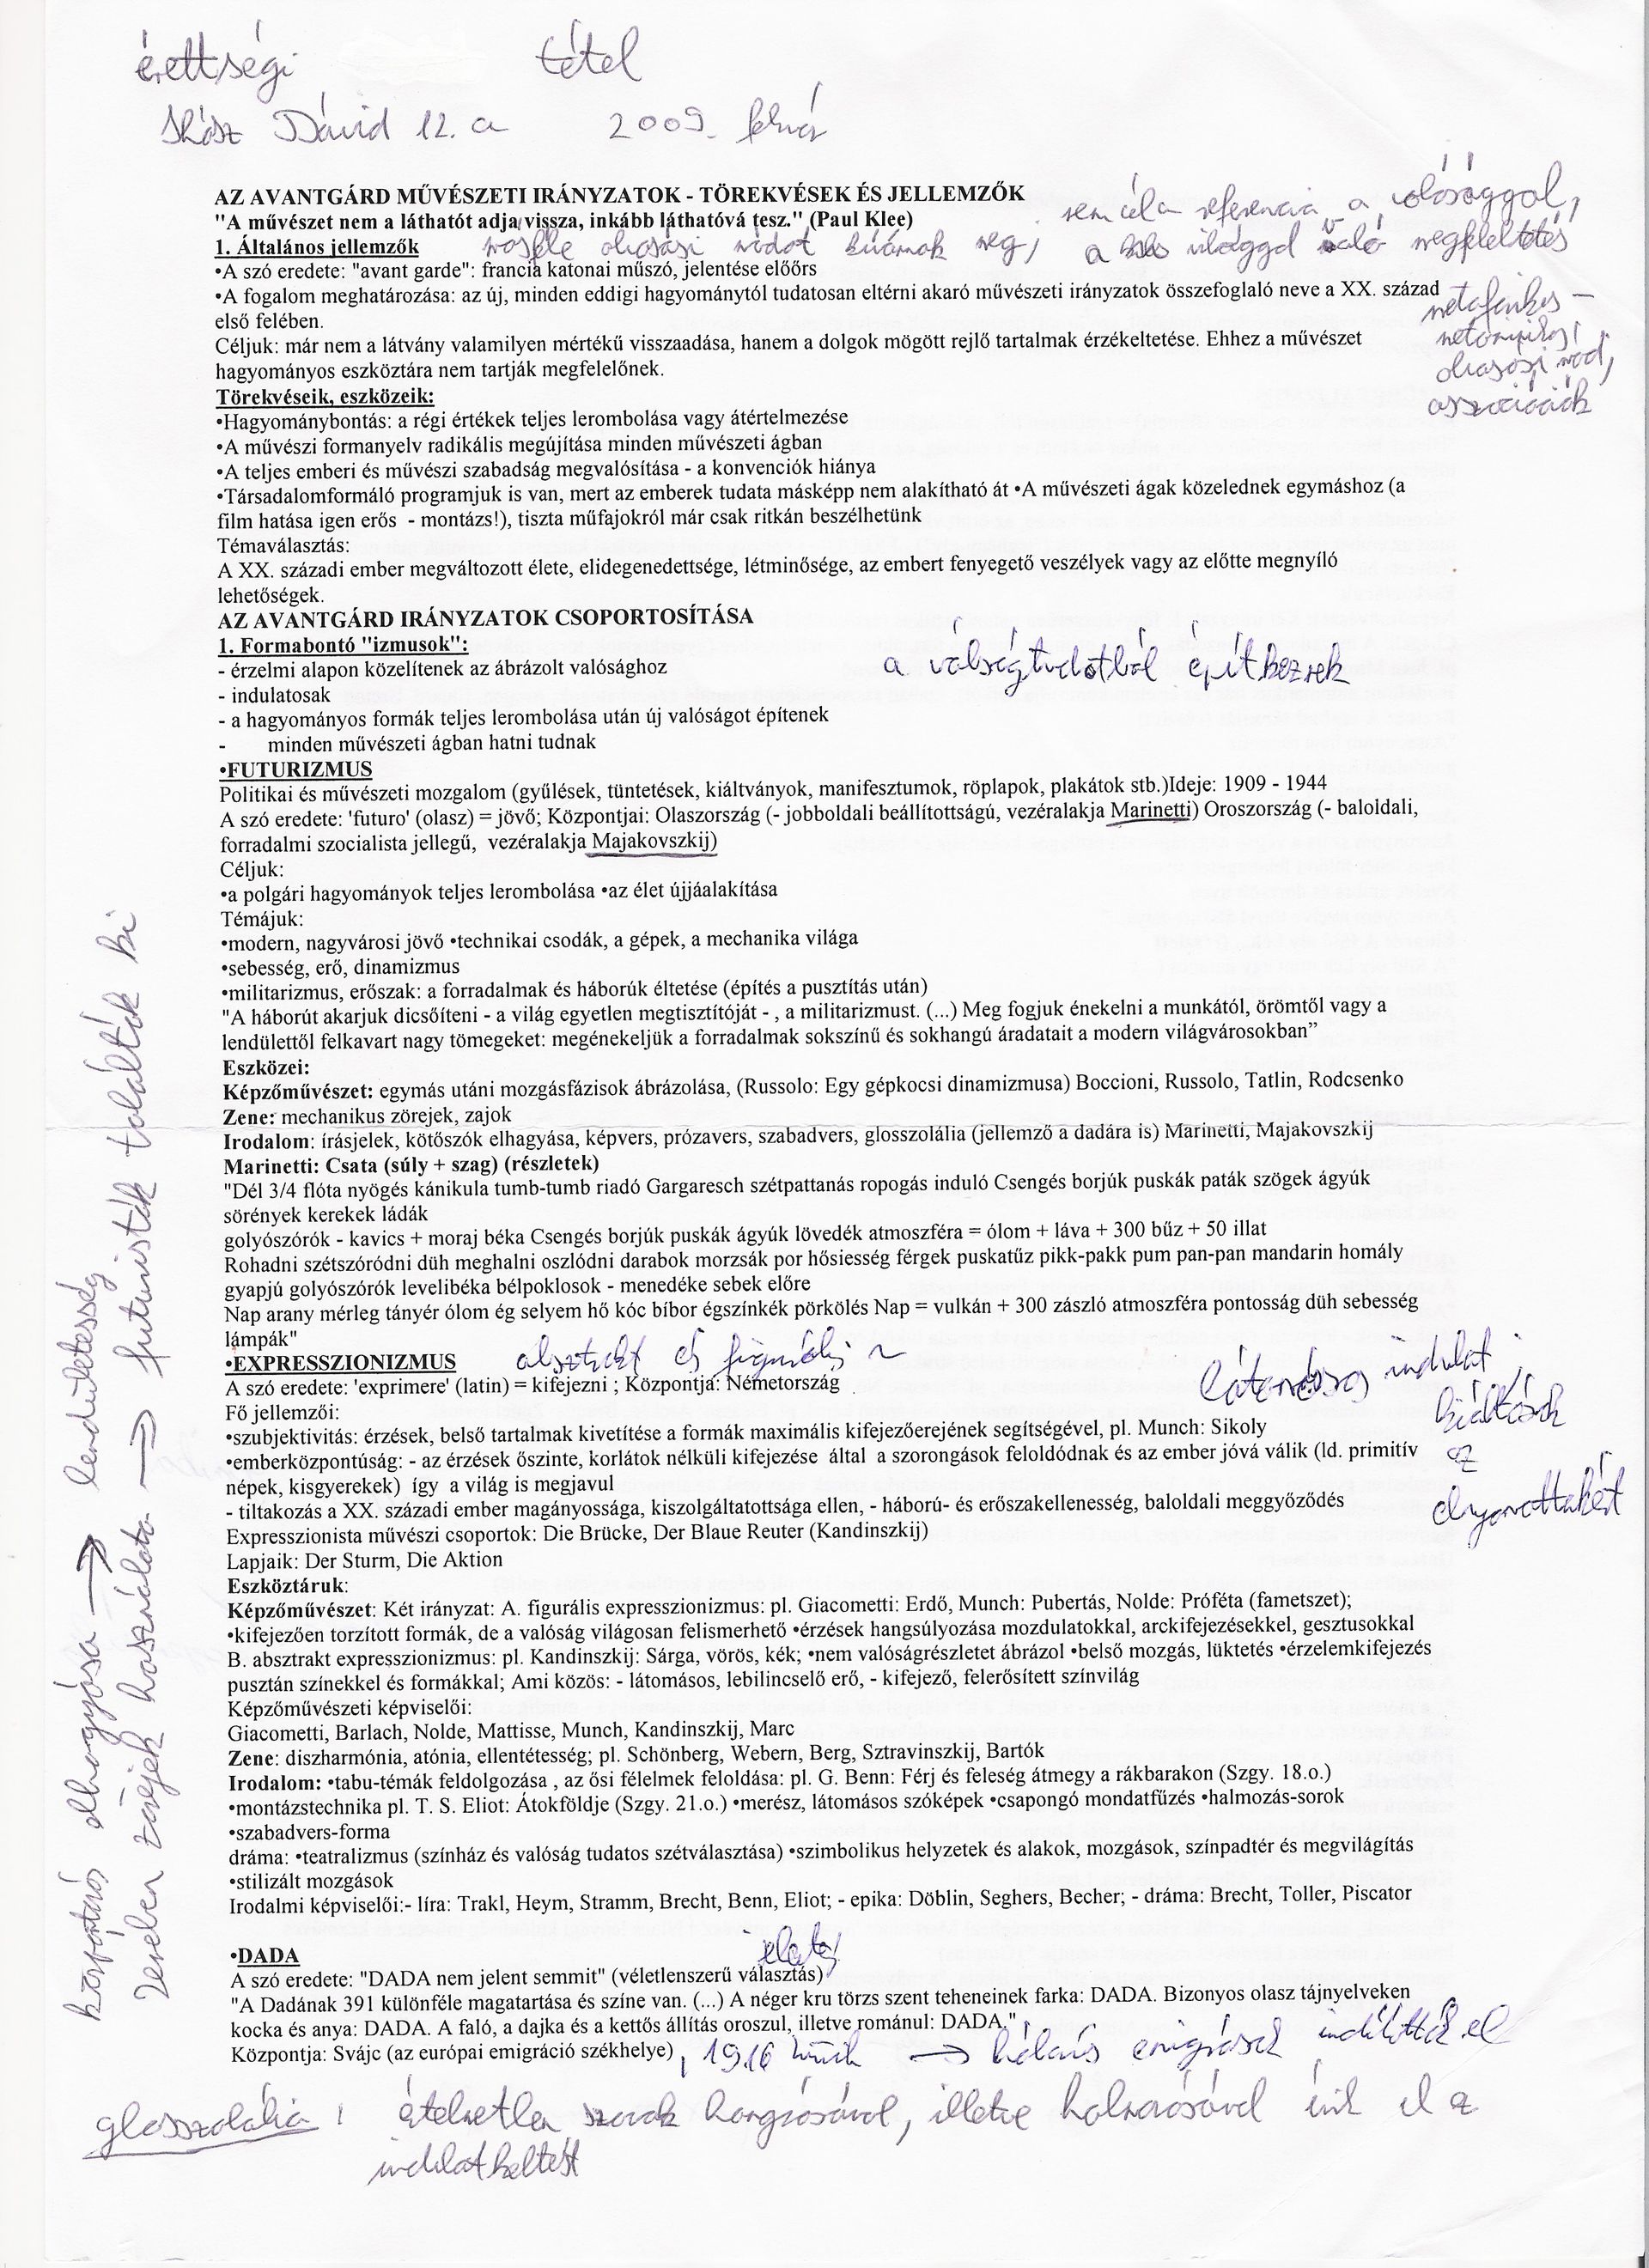 érettségi tétel
Dávid 12. a 2009. febuár
AZ AVANTGÁRD MŰVÉSZETI IRÁNYZATOK - TÖREKVÉSEK ÉS JELLEMZŐK
"A művészet nem a láthatót adja vissza, inkább láthatóvá tesz." (Paul Klee)
nem célja referencia a valósággal,
1. Általános jellemzők
másféle olvasási módot kívánnak meg, a külső világgal való megfeleltetés
•A szó eredete: "avant garde": francia katonai műszó, jelentése előőrs
•A fogalom meghatározása: az új, minden eddigi hagyománytól tudatosan eltérni akaró művészeti irányzatok összefoglaló neve a XX. század
első felében.
metaforikus -
metonimikus
olvasási mód,
asszociációk
Céljuk: már nem a látvány valamilyen mértékű visszaadása, hanem a dolgok mögött rejlő tartalmak érzékeltetése. Ehhez a művészet
hagyományos eszköztára nem tartják megfelelőnek.
Törekvéseik, eszközeik:
•Hagyománybontás: a régi értékek teljes lerombolása vagy átértelmezése
•A művészi formanyelv radikális megújítása minden művészeti ágban
•A teljes emberi és művészi szabadság megvalósítása - a konvenciók hiánya
•Társadalomformáló programjuk is van, mert az emberek tudata másképp nem alakítható át •A művészeti ágak közelednek egymáshoz (a
film hatása igen erős - montázs!), tiszta műfajokról már csak ritkán beszélhetünk
Témaválasztás:
A XX. századi ember megváltozott élete, elidegenedettsége, létminősége, az embert fenyegető veszélyek vagy az előtte megnyíló
lehetőségek.
AZ AVANTGÁRD IRÁNYZATOK CSOPORTOSÍTÁSA
1. Formabontó "izmusok":
- érzelmi alapon közelítenek az ábrázolt valósághoz
a válságtudatból építkeznek
- indulatosak
- a hagyományos formák teljes lerombolása után új valóságot építenek
- minden művészeti ágban hatni tudnak
•FUTURIZMUS
Politikai és művészeti mozgalom (gyűlések, tüntetések, kiáltványok, manifesztumok, röplapok, plakátok stb.)Ideje: 1909 - 1944
A szó eredete: 'futuro' (olasz) = jövő; Központjai: Olaszország (- jobboldali beállítottságú, vezéralakja Marinetti) Oroszország (- baloldali,
forradalmi szocialista jellegű, vezéralakja Majakovszkij)
Céljuk:
•a polgári hagyományok teljes lerombolása •az élet újjáalakítása
Témájuk:
•modern, nagyvárosi jövő •technikai csodák, a gépek, a mechanika világa
•sebesség, erő, dinamizmus
•militarizmus, erőszak: a forradalmak és háborúk éltetése (építés a pusztítás után)
"A háborút akarjuk dicsőíteni - a világ egyetlen megtisztítóját - , a militarizmust. (...) Meg fogjuk énekelni a munkától, örömtől vagy a
lendülettől felkavart nagy tömegeket: megénekeljük a forradalmak sokszínű és sokhangú áradatait a modern világvárosokban”
Eszközei:
Képzőművészet: egymás utáni mozgásfázisok ábrázolása, (Russolo: Egy gépkocsi dinamizmusa) Boccioni, Russolo, Tatlin, Rodcsenko
Zene: mechanikus zörejek, zajok
Irodalom: írásjelek, kötőszók elhagyása, képvers, prózavers, szabadvers, glosszolália (jellemző a dadára is) Marinetti, Majakovszkij
Marinetti: Csata (súly + szag) (részletek)
"Dél 3/4 flóta nyögés kánikula tumb-tumb riadó Gargaresch szétpattanás ropogás induló Csengés borjúk puskák paták szögek ágyúk
sörények kerekek ládák
golyószórók - kavics + moraj béka Csengés borjúk puskák ágyúk lövedék atmoszféra = ólom + láva + 300 bűz + 50 illat
Rohadni szétszóródni düh meghalni oszlódni darabok morzsák por hősiesség férgek puskatűz pikk-pakk pum pan-pan mandarin homály
gyapjú golyószórók levelibéka bélpoklosok - menedéke sebek előre
Nap arany mérleg tányér ólom ég selyem hő kóc bíbor égszínkék pörkölés Nap = vulkán + 300 zászló atmoszféra pontosság düh sebesség
lámpák"
központozás elhagyása → lendületesség
Zenében zörejek használata → futuristák találták ki
•EXPRESSZIONIZMUS absztrakt és figurális ~
A szó eredete: 'exprimere' (latin) = kifejezni ; Központja: Németország
látomásos indulat
kiáltások
az
elnyomottakért
Fő jellemzői:
•szubjektivitás: érzések, belső tartalmak kivetítése a formák maximális kifejezőerejének segítségével, pl. Munch: Sikoly
•emberközpontúság: - az érzések őszinte, korlátok nélküli kifejezése által a szorongások feloldódnak és az ember jóvá válik (ld. primitív
népek, kisgyerekek) így a világ is megjavul
- tiltakozás a XX. századi ember magányossága, kiszolgáltatottsága ellen, - háború- és erőszakellenesség, baloldali meggyőződés
Expresszionista művészi csoportok: Die Brücke, Der Blaue Reuter (Kandinszkij)
Lapjaik: Der Sturm, Die Aktion
Eszköztáruk:
Képzőművészet: Két irányzat: A. figurális expresszionizmus: pl. Giacometti: Erdő, Munch: Pubertás, Nolde: Próféta (fametszet);
•kifejezően torzított formák, de a valóság világosan felismerhető •érzések hangsúlyozása mozdulatokkal, arckifejezésekkel, gesztusokkal
B. absztrakt expresszionizmus: pl. Kandinszkij: Sárga, vörös, kék; •nem valóságrészletet ábrázol •belső mozgás, lüktetés •érzelemkifejezés
pusztán színekkel és formákkal; Ami közös: - látomásos, lebilincselő erő, - kifejező, felerősített színvilág
Képzőművészeti képviselői:
Giacometti, Barlach, Nolde, Mattisse, Munch, Kandinszkij, Marc
Zene: diszharmónia, atónia, ellentétesség; pl. Schönberg, Webern, Berg, Sztravinszkij, Bartók
Irodalom: •tabu-témák feldolgozása , az ősi félelmek feloldása: pl. G. Benn: Férj és feleség átmegy a rákbarakon (Szgy. 18.o.)
•montázstechnika pl. T. S. Eliot: Átokföldje (Szgy. 21.o.) •merész, látomásos szóképek •csapongó mondatfűzés •halmozás-sorok
•szabadvers-forma
dráma: •teatralizmus (színház és valóság tudatos szétválasztása) •szimbolikus helyzetek és alakok, mozgások, színpadtér és megvilágítás
•stilizált mozgások
Irodalmi képviselői:- líra: Trakl, Heym, Stramm, Brecht, Benn, Eliot; - epika: Döblin, Seghers, Becher; - dráma: Brecht, Toller, Piscator
•DADA
A szó eredete: "DADA nem jelent semmit" (véletlenszerű választás)
"A Dadának 391 különféle magatartása és színe van. (...) A néger kru törzs szent teheneinek farka: DADA. Bizonyos olasz tájnyelveken
kocka és anya: DADA. A faló, a dajka és a kettős állítás oroszul, illetve románul: DADA."
Központja: Svájc (az európai emigráció székhelye), 1916 Zürich → háborús emigránsok indították el
glosszolália: értelmetlen szavak hangzásával, illetve halmozásával érik el az
indulatkeltést